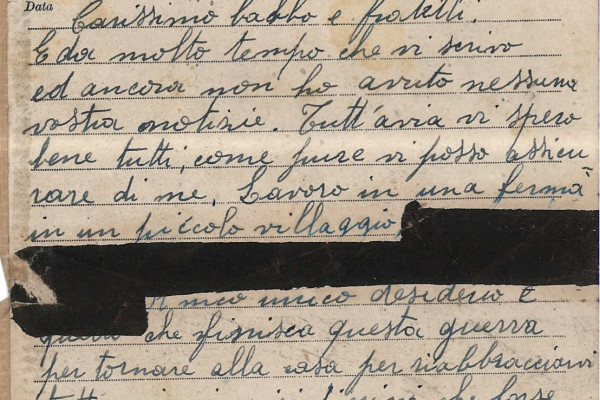 Data
Carissimo babbo e fratelli.
E da molto tempo che vi scrivo
ed ancora non ho avuto nessuna
vostra notizie. Tutt'avia vi spero
bene tutti, come pure vi posso assicu
rare di me. Lavoro in una ferma
in un piccolo villaggio
mio unico desiderio è
che finisca questa guerra
per tornare alla casa per riabbracciarvi
che forse